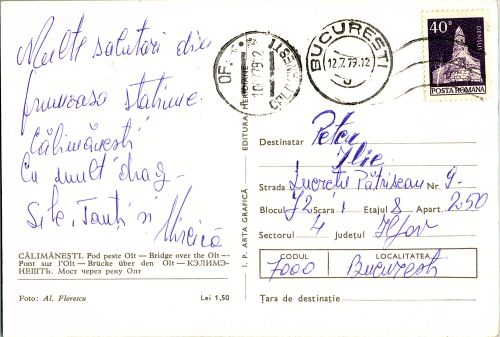 Multe salutări din
frumoasa stațiune
Călimănești
Cu mult drag
Sile, Tanți și Mircică
CĂLIMĂNEȘTI. Pod peste Olt — Bridge over the Olt —
Pont sur l'Olt — Brücke über den Olt — КЭЛИМЭ-
НЕШТЬ. Мост через реку Олт
Foto: Al. Florescu Lei 1,50
I. P. ARTA GRAFICĂ EDITURA MERIDIANE
BUCUREȘTI
12.7.79.12
40B
DENSUȘ
POSTA ROMANA
Destinatar Petcu
Ilie
Strada Lucreții Pătrășcanu Nr. 9
Blocul Y2 Scara 1 Etajul 8 Apart. 250
Sectorul 4 Județul Ilfov
CODUL LOCALITATEA
7000 București
Țara de destinație